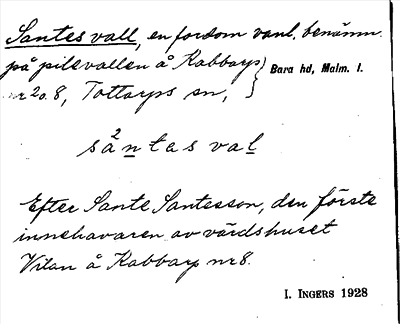 Santes vall, en fordom vanl. benämn.
på pilevallen å Kabbarp
nr 2 o. 8, Tottarps sn,
Bara hd, Malm. l.
sa²ntas val
Efter Sante Santesson, den förste
innehavaren av värdshuset
Vilan å Kabbarp nr 8.
I. INGERS 1928